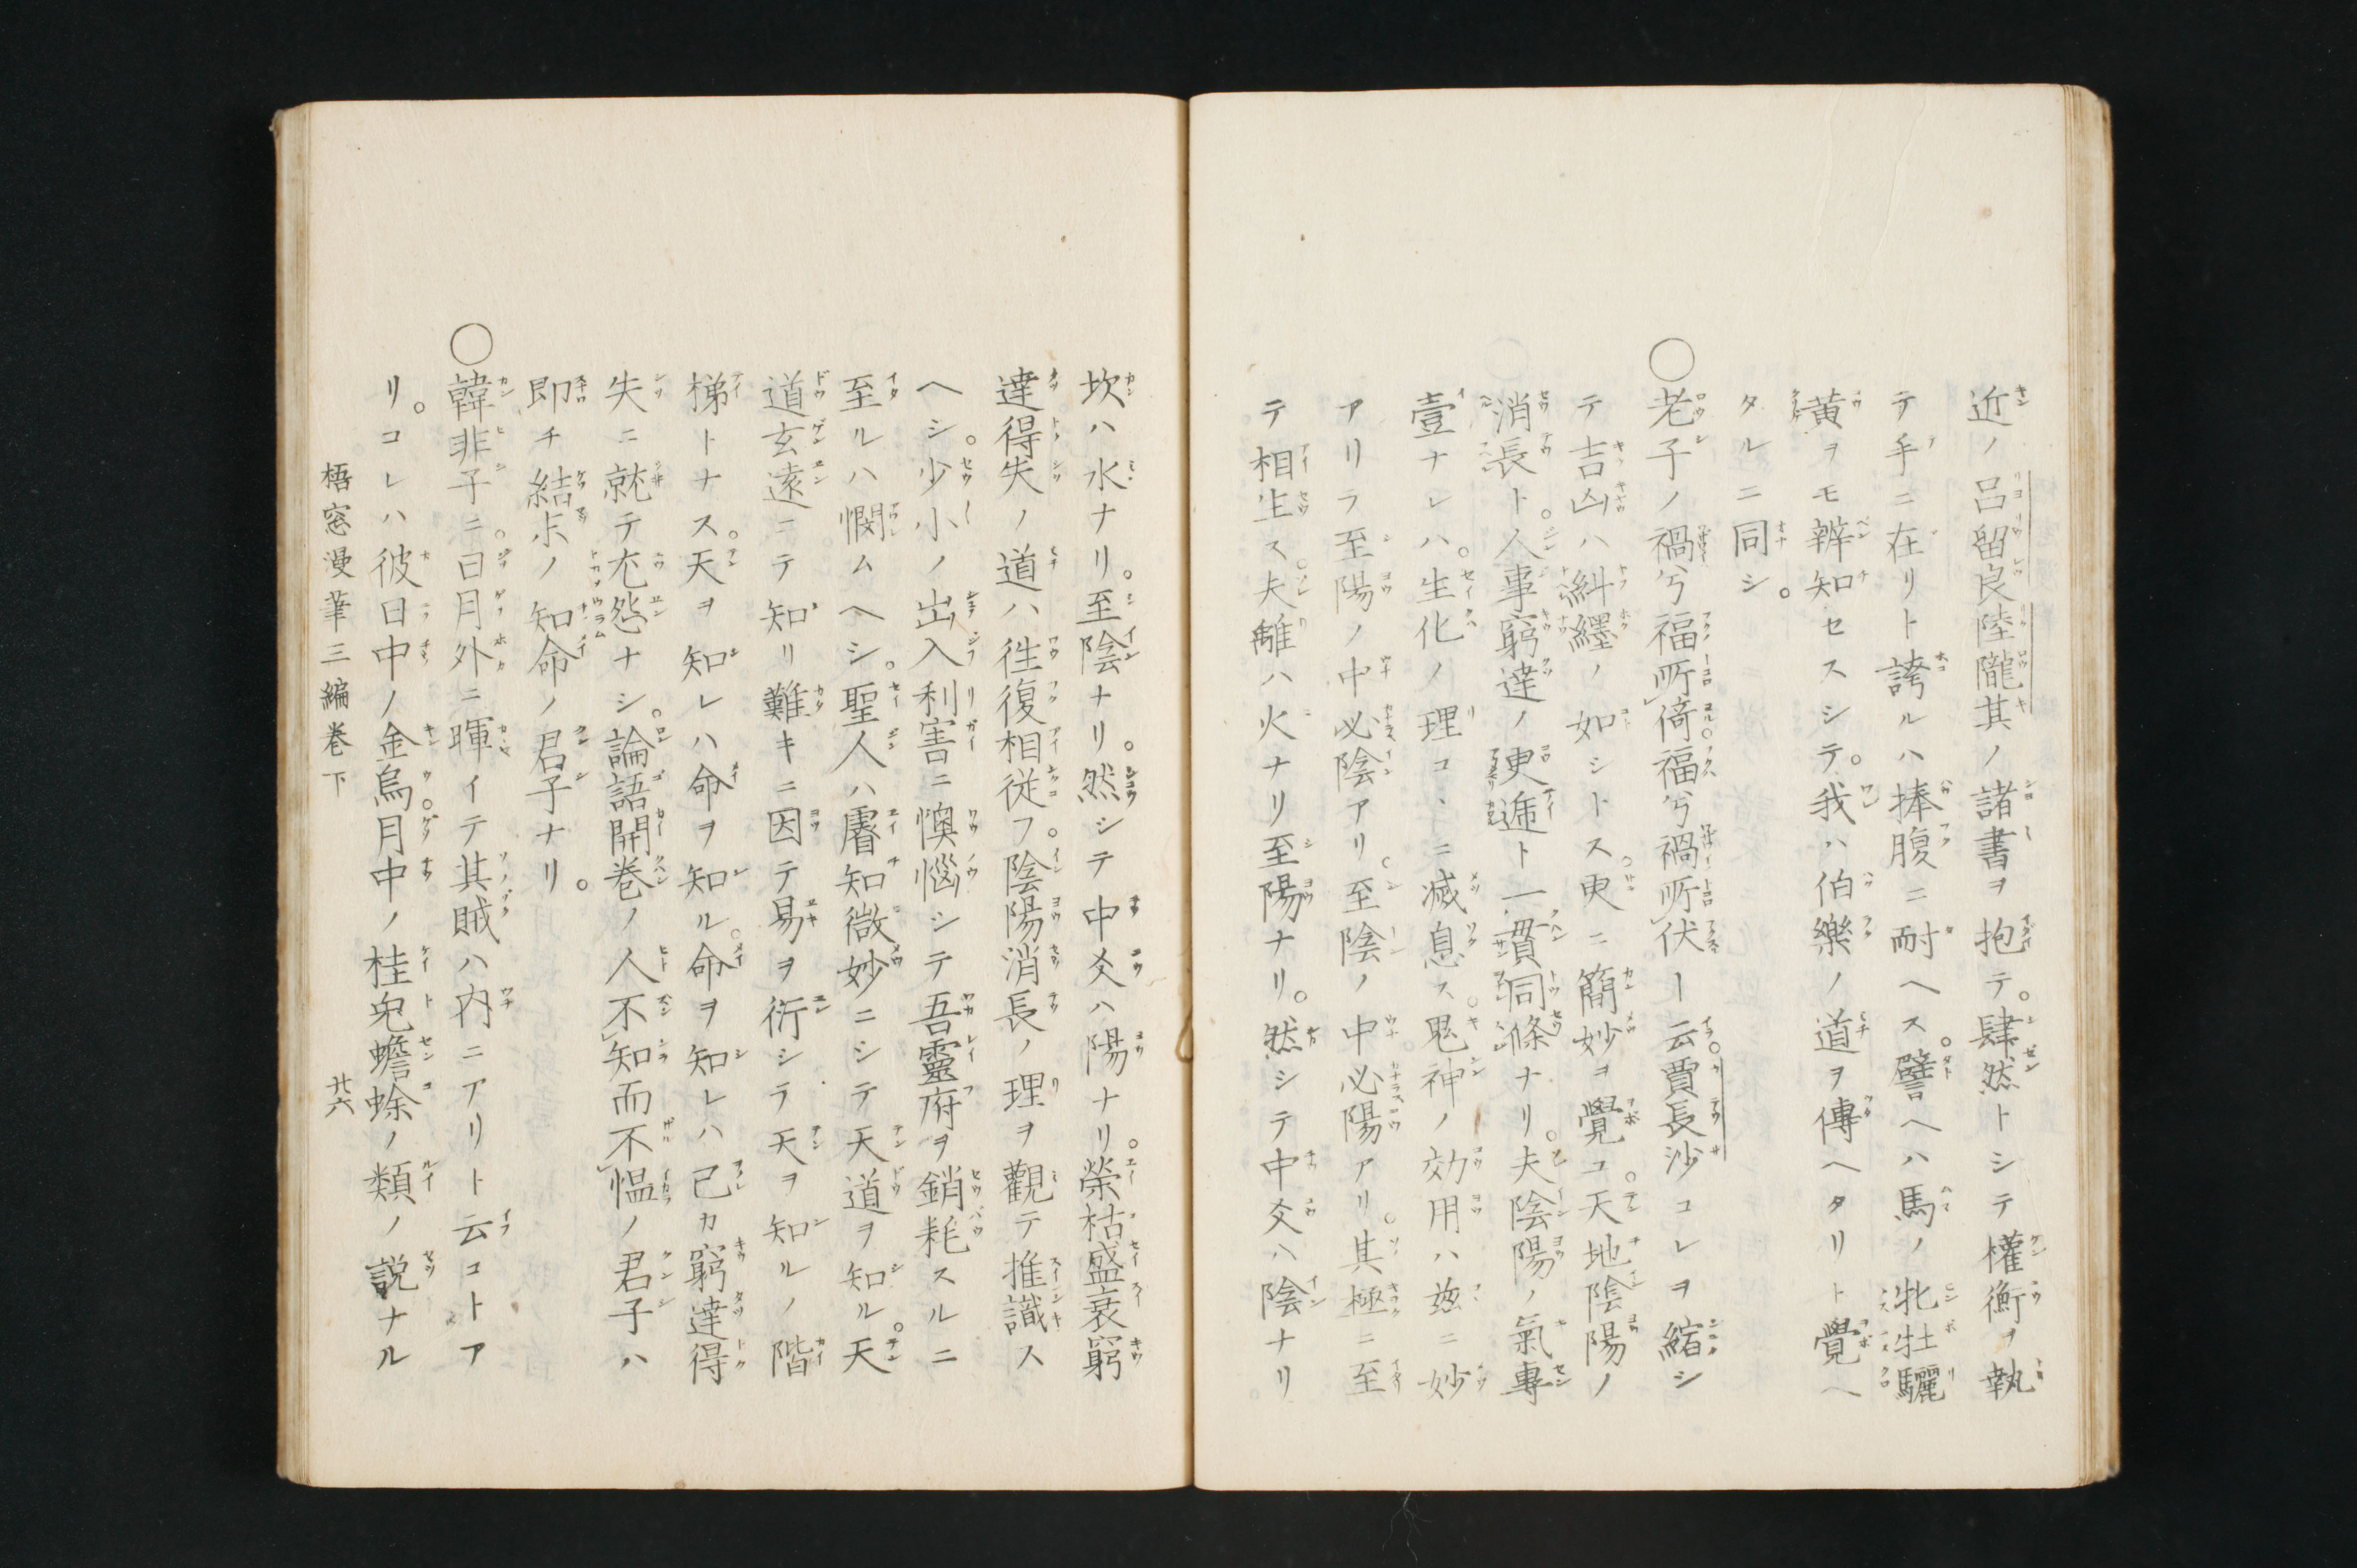 近ノ呂留良陸隴其ノ諸書ヲ抱テ。肆然トシテ權衡ヲ執
テ手ニ在リト誇ルハ捧腹ニ耐ヘス。譬ヘハ馬ノ牝牡驪
黄ヲモ辨知セスシテ。我ハ伯樂ノ道ヲ傳ヘタリト覺ヘ
タルニ同シ。
○老子ノ禍兮福所倚。福兮禍所伏ト云。賈長沙コレヲ縮シ
テ吉凶ハ糾纆ノ如シトス。更ニ簡妙ヲ覺コ。天地陰陽ノ
消長ト。人事窮達ノ更逓ト一貫同條ナリ。夫陰陽ノ氣專
壹ナレハ。生化ノ理コヽニ滅息ス。鬼神ノ効用ハ茲ニ妙
アリラ至陽ノ中必陰アリ。至陰ノ中必陽アリ。其極ニ至
テ相生ス。夫離ハ火ナリ至陽ナリ。然シテ中爻ハ陰ナリ。
坎ハ水ナリ。至陰ナリ。然シテ中爻ハ陽ナリ。榮枯盛衰窮
達得失ノ道ハ往復相従フ。陰陽消長ノ理ヲ觀テ推識ス
ヘシ。少小ノ出入利害ニ懊惱シテ吾靈府ヲ銷耗スルニ
至ルハ憫ムヘシ。聖人ハ睿知微妙ニシテ天道ヲ知ル。天
道玄遠ニテ知リ難キニ因テ易ヲ衍シラ天ヲ知ルノ階
梯トナス。天ヲ知レハ命ヲ知ル。命ヲ知レハ己カ窮達得
失ニ就テ尤怨ナシ。論語開巻ノ人不知而不慍ノ君子ハ
即チ結末ノ知命ノ君子ナリ。
○韓非子ニ。日月外ニ暉イテ其賊ハ内ニアリト云コトア
リ。コレハ彼日中ノ金烏。月中ノ桂兎蟾蜍ノ類ノ説ナル
梧窓漫筆三編巻下 廿六